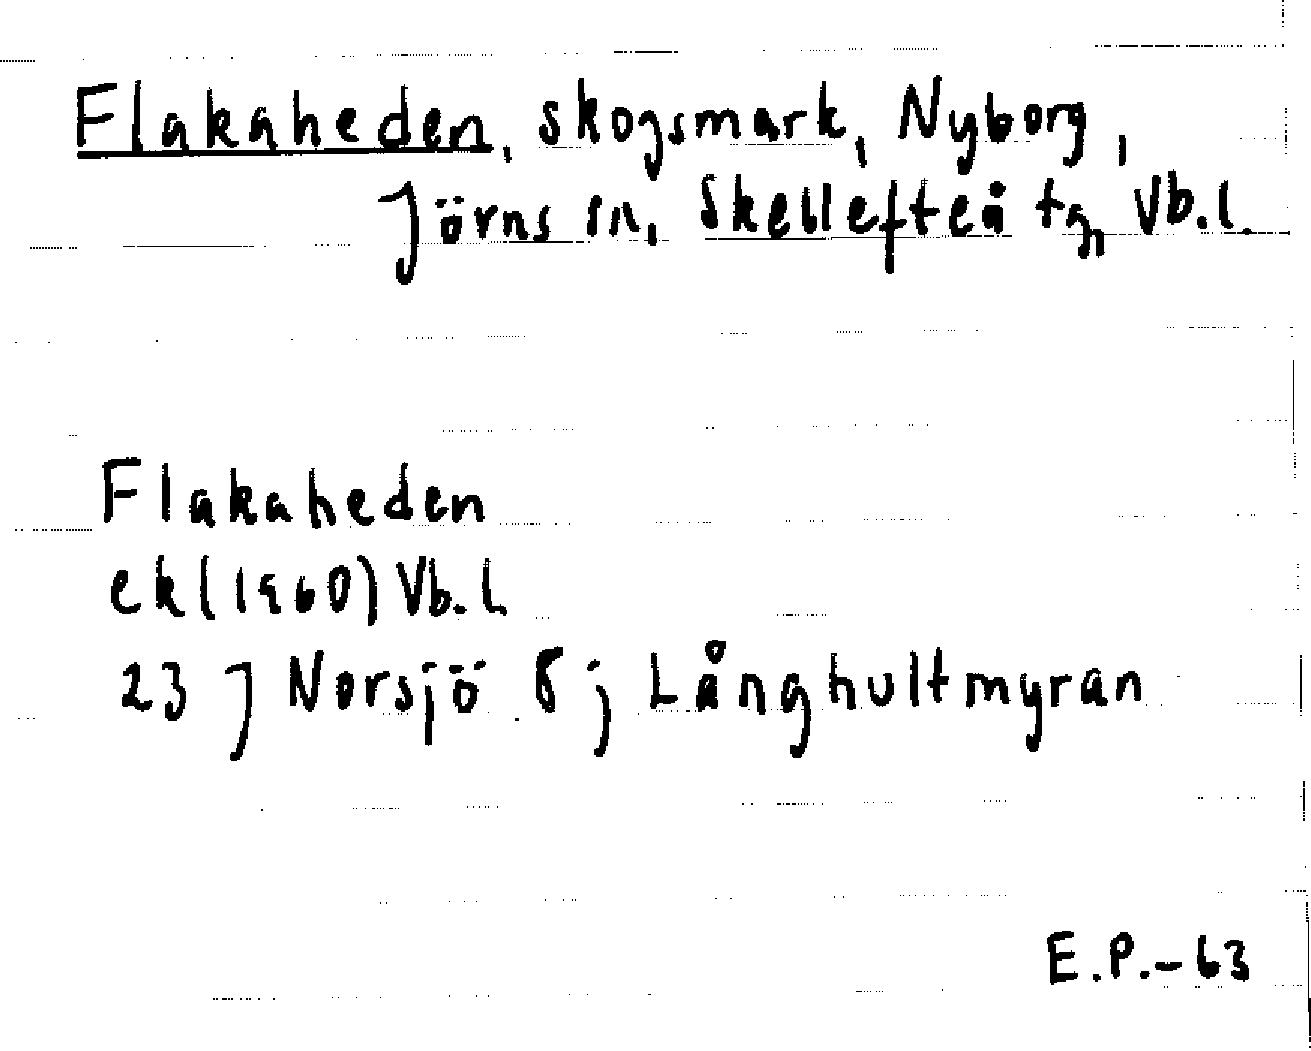 Flakaheden, skogsmark, Nyborg,
Jörns sn, Skellefteå tg, Vb.l.
Flakaheden
ek (1960) Vb.l.
23 J Norsjö 8 j Långhultmyran
E.P.-63